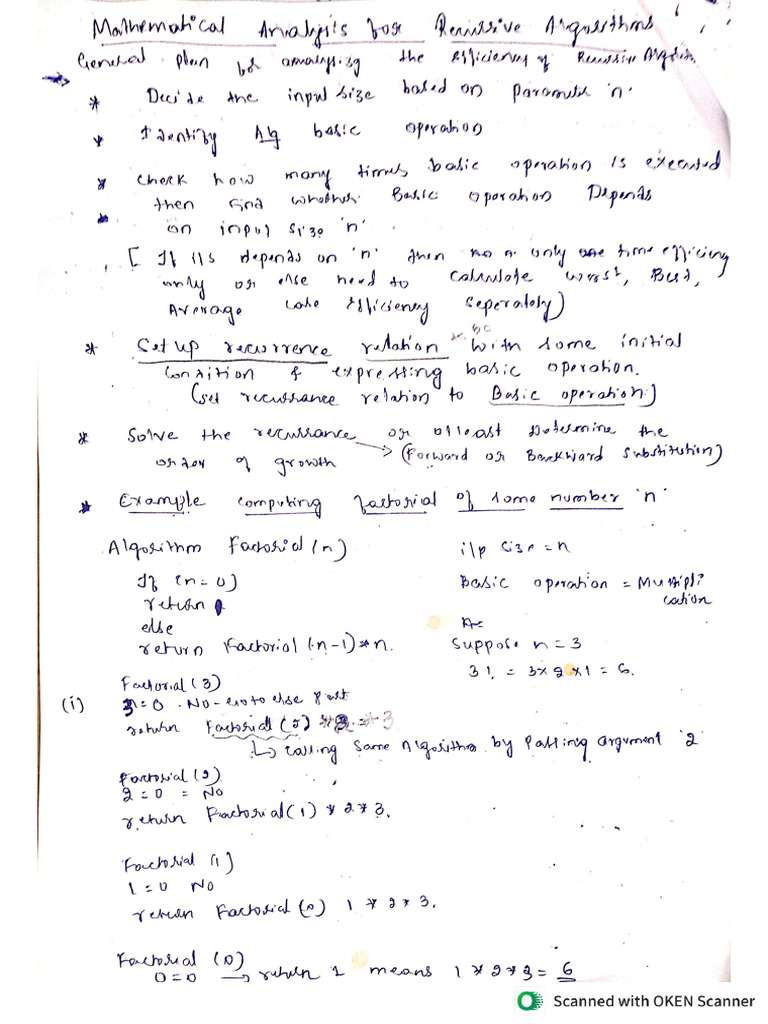 Mathematical Analysis for Recursive Algorithms
General plan for analysisg the efficiency of Recursive Algorith
* Decide the input size based on Parameter 'n'.
* Identify Alg basic operation
* Check how many times basic operation is executed
then find whether Basic operation Depends
on input size 'n'
[ If its depends on 'n' then no or only one time efficiency
only or else need to calculate worst, Best,
Average case Efficiency seperately)
* Set up recurrence relation with some initial
condition & expressing basic operation.
(set recurrance relation to Basic operation)
* Solve the recurrance or atleast Determine the
order of growth (Forward or Backward Substitution)
* Example computing factorial of some number 'n'
Algorithm Factorial(n) i/p size = n
If (n=0) Basic operation = Multipli
return cation
else
return Factorial(n-1)*n. Suppose n = 3
3! = 3×2×1 = 6.
Factorial(3)
(i) 3=0 . No - goto else part
return Factorial(2) * 3
↳ calling same Algorithm by Passing argument '2'
Factorial(2)
2=0 = No
return Factorial(1) * 2 * 3.
Factorial(1)
1=0 No
return Factorial(0) 1 * 2 * 3.
Factorial(0)
0=0 → return 1 means 1 * 2 * 3 = 6
Scanned with OKEN Scanner